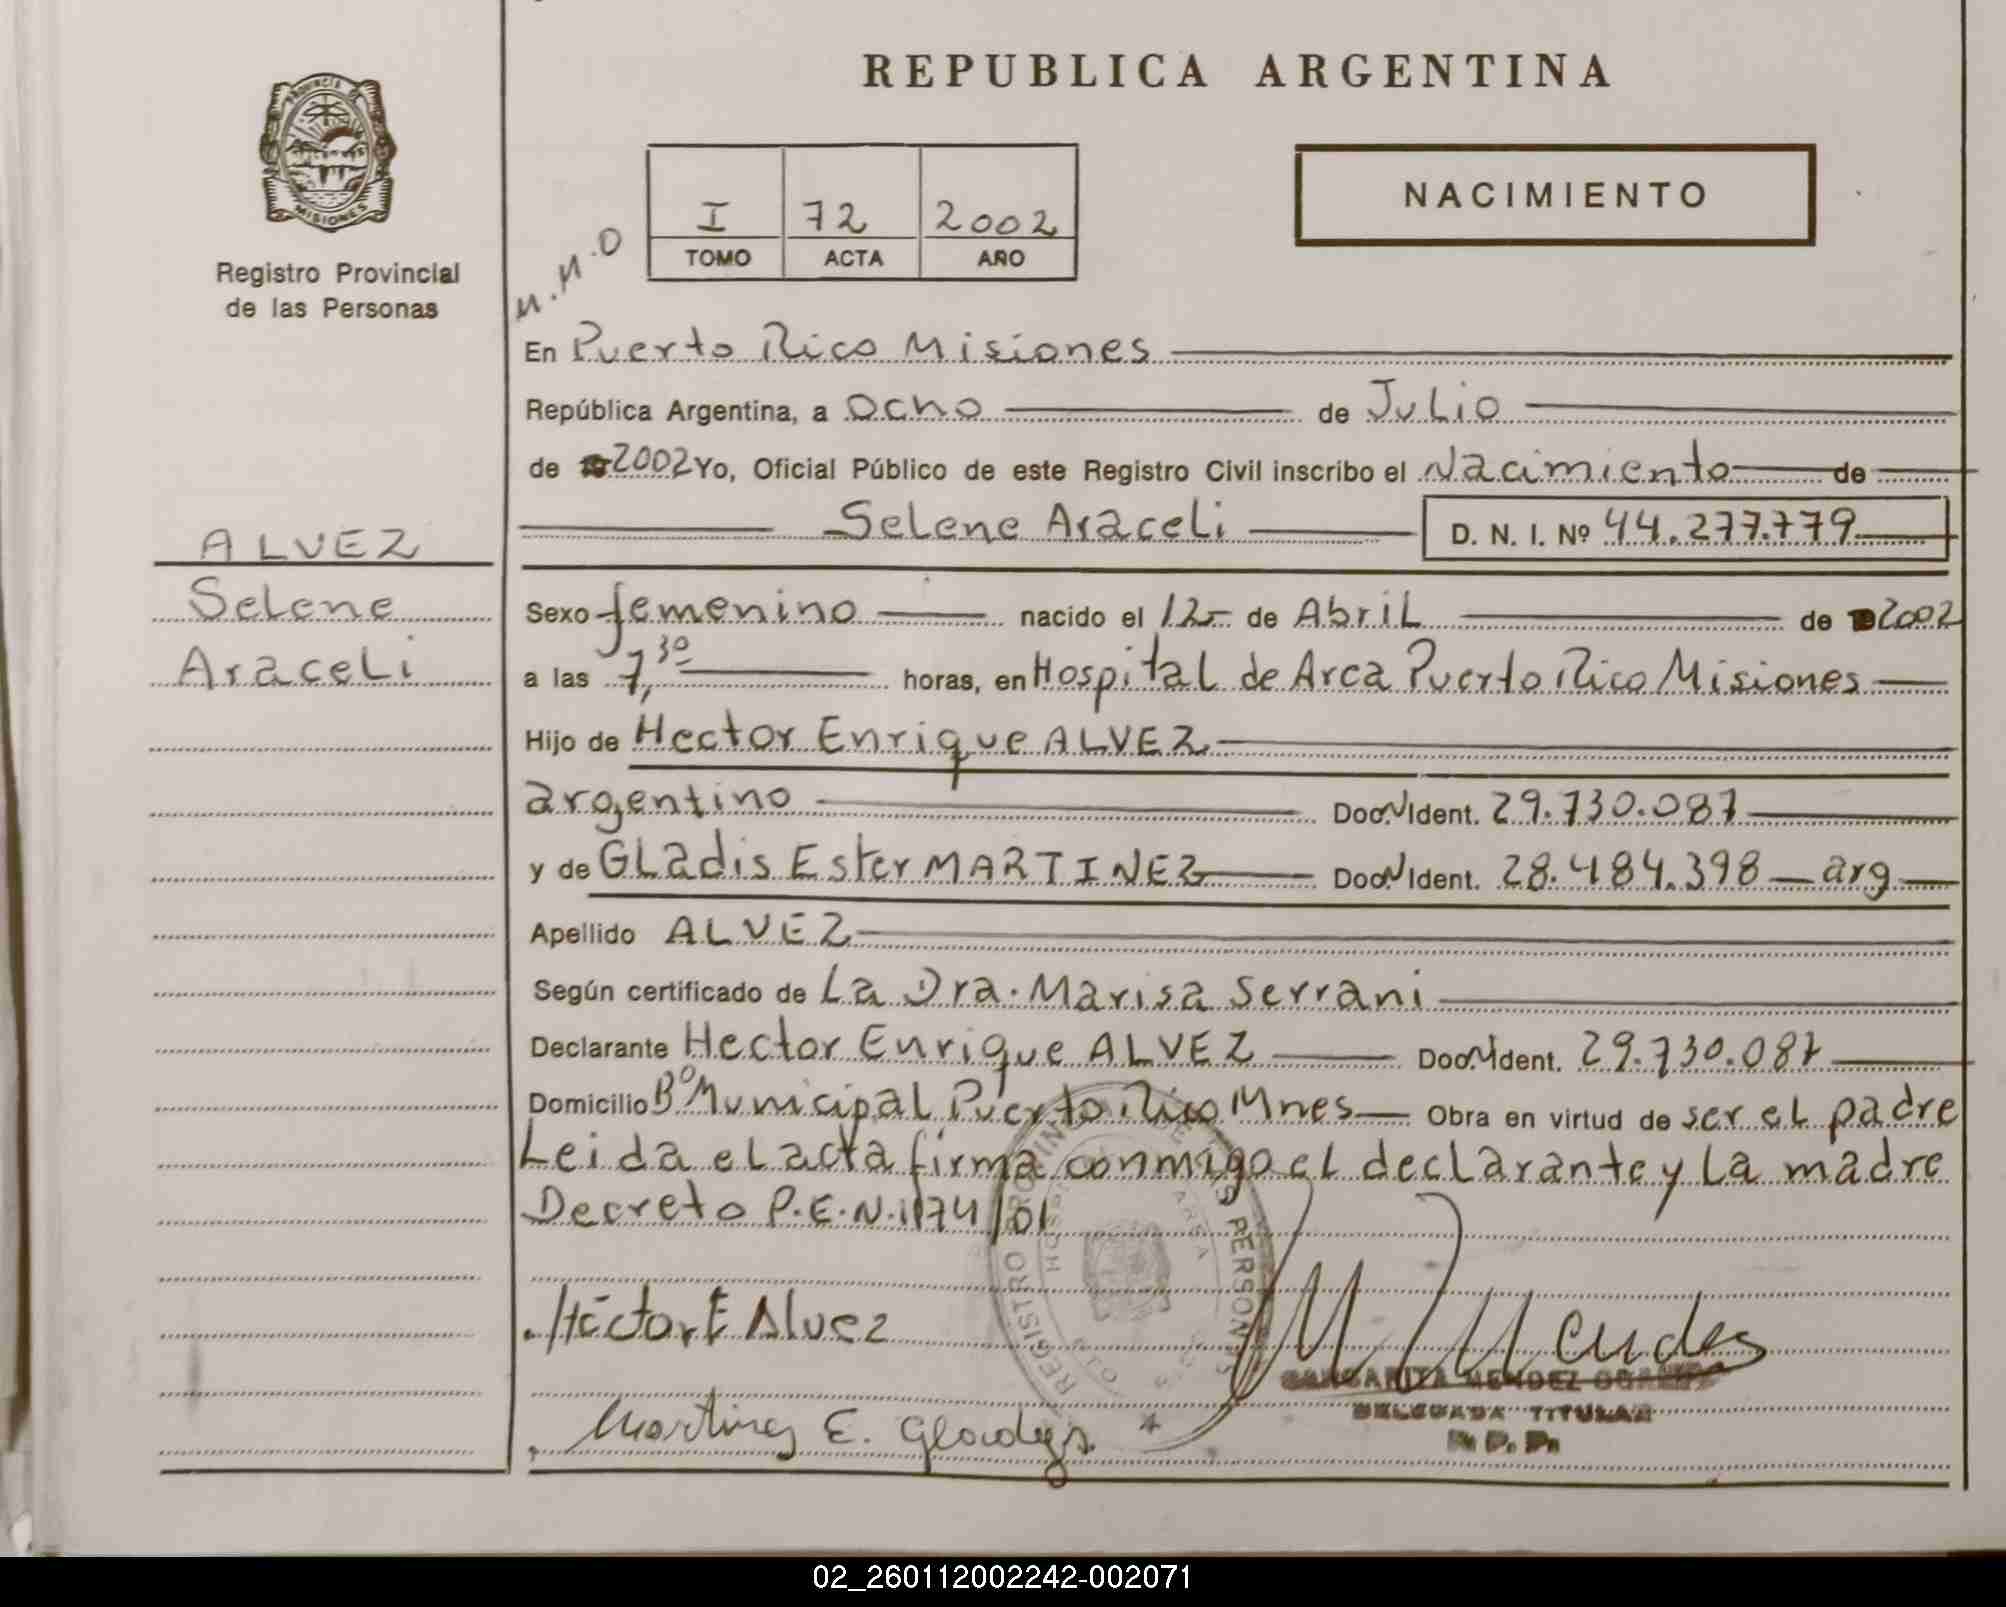 REPUBLICA ARGENTINA
PROVINCIA DE
MISIONES
Registro Provincial
de las Personas
NACIMIENTO
I 72 2002
TOMO ACTA AÑO
En Puerto Rico Misiones
República Argentina, a ocho de Julio
de 2002 Yo, Oficial Público de este Registro Civil inscribo el Nacimiento de
Selene Araceli D. N. I. Nº 44.277.779
ALVEZ
Selene
Araceli
Sexo femenino nacido el 12 de Abril de 2002
a las 7,30 horas, en Hospital de Area Puerto Rico Misiones
Hijo de Hector Enrique ALVEZ
argentino Doc.N Ident. 29.730.087
y de GLadis Ester MARTINEZ Doc.N Ident. 28.484.398 arg
Apellido ALVEZ
Según certificado de La Dra. Marisa Serrani
Declarante Hector Enrique ALVEZ Doc.N Ident. 29.730.087
Domicilio Bº Municipal Puerto Rico Mnes Obra en virtud de ser el padre
Leida el acta firma conmigo el declarante y la madre
Decreto P.E.N. 1174/01
Héctor E Alvez
Martinez E. Gladys
M Mendez
MARGARITA MENDEZ
DELEGADA TITULAR
R. P. P.
REGISTRO PERSONAS
02_260112002242-002071